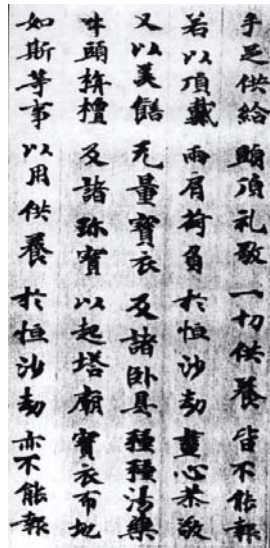 手足供給 頭頂礼敬 一切供養 皆不能報
若以頂戴 兩肩荷負 於恒沙劫 盡心恭敬
又以美饍 无量寶衣 及諸卧具 種種湯藥
牛頭栴檀 及諸珎寳 以起塔廟 寶衣布地
如斯等事 以用供養 於恒沙劫 亦不能報